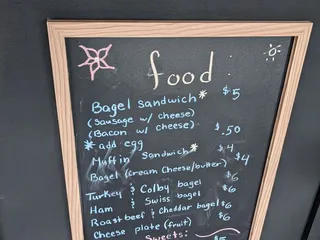 food:
Bagel sandwich* $5
(Sausage w/ cheese)
(Bacon w/ cheese)
* add egg $.50
Muffin Sandwich* $4
Bagel (cream cheese/butter) $4
Turkey & Colby bagel $6
Ham & Swiss bagel $6
Roastbeef & Cheddar bagel $6
Cheese plate (fruit) $6
Sweets: $5